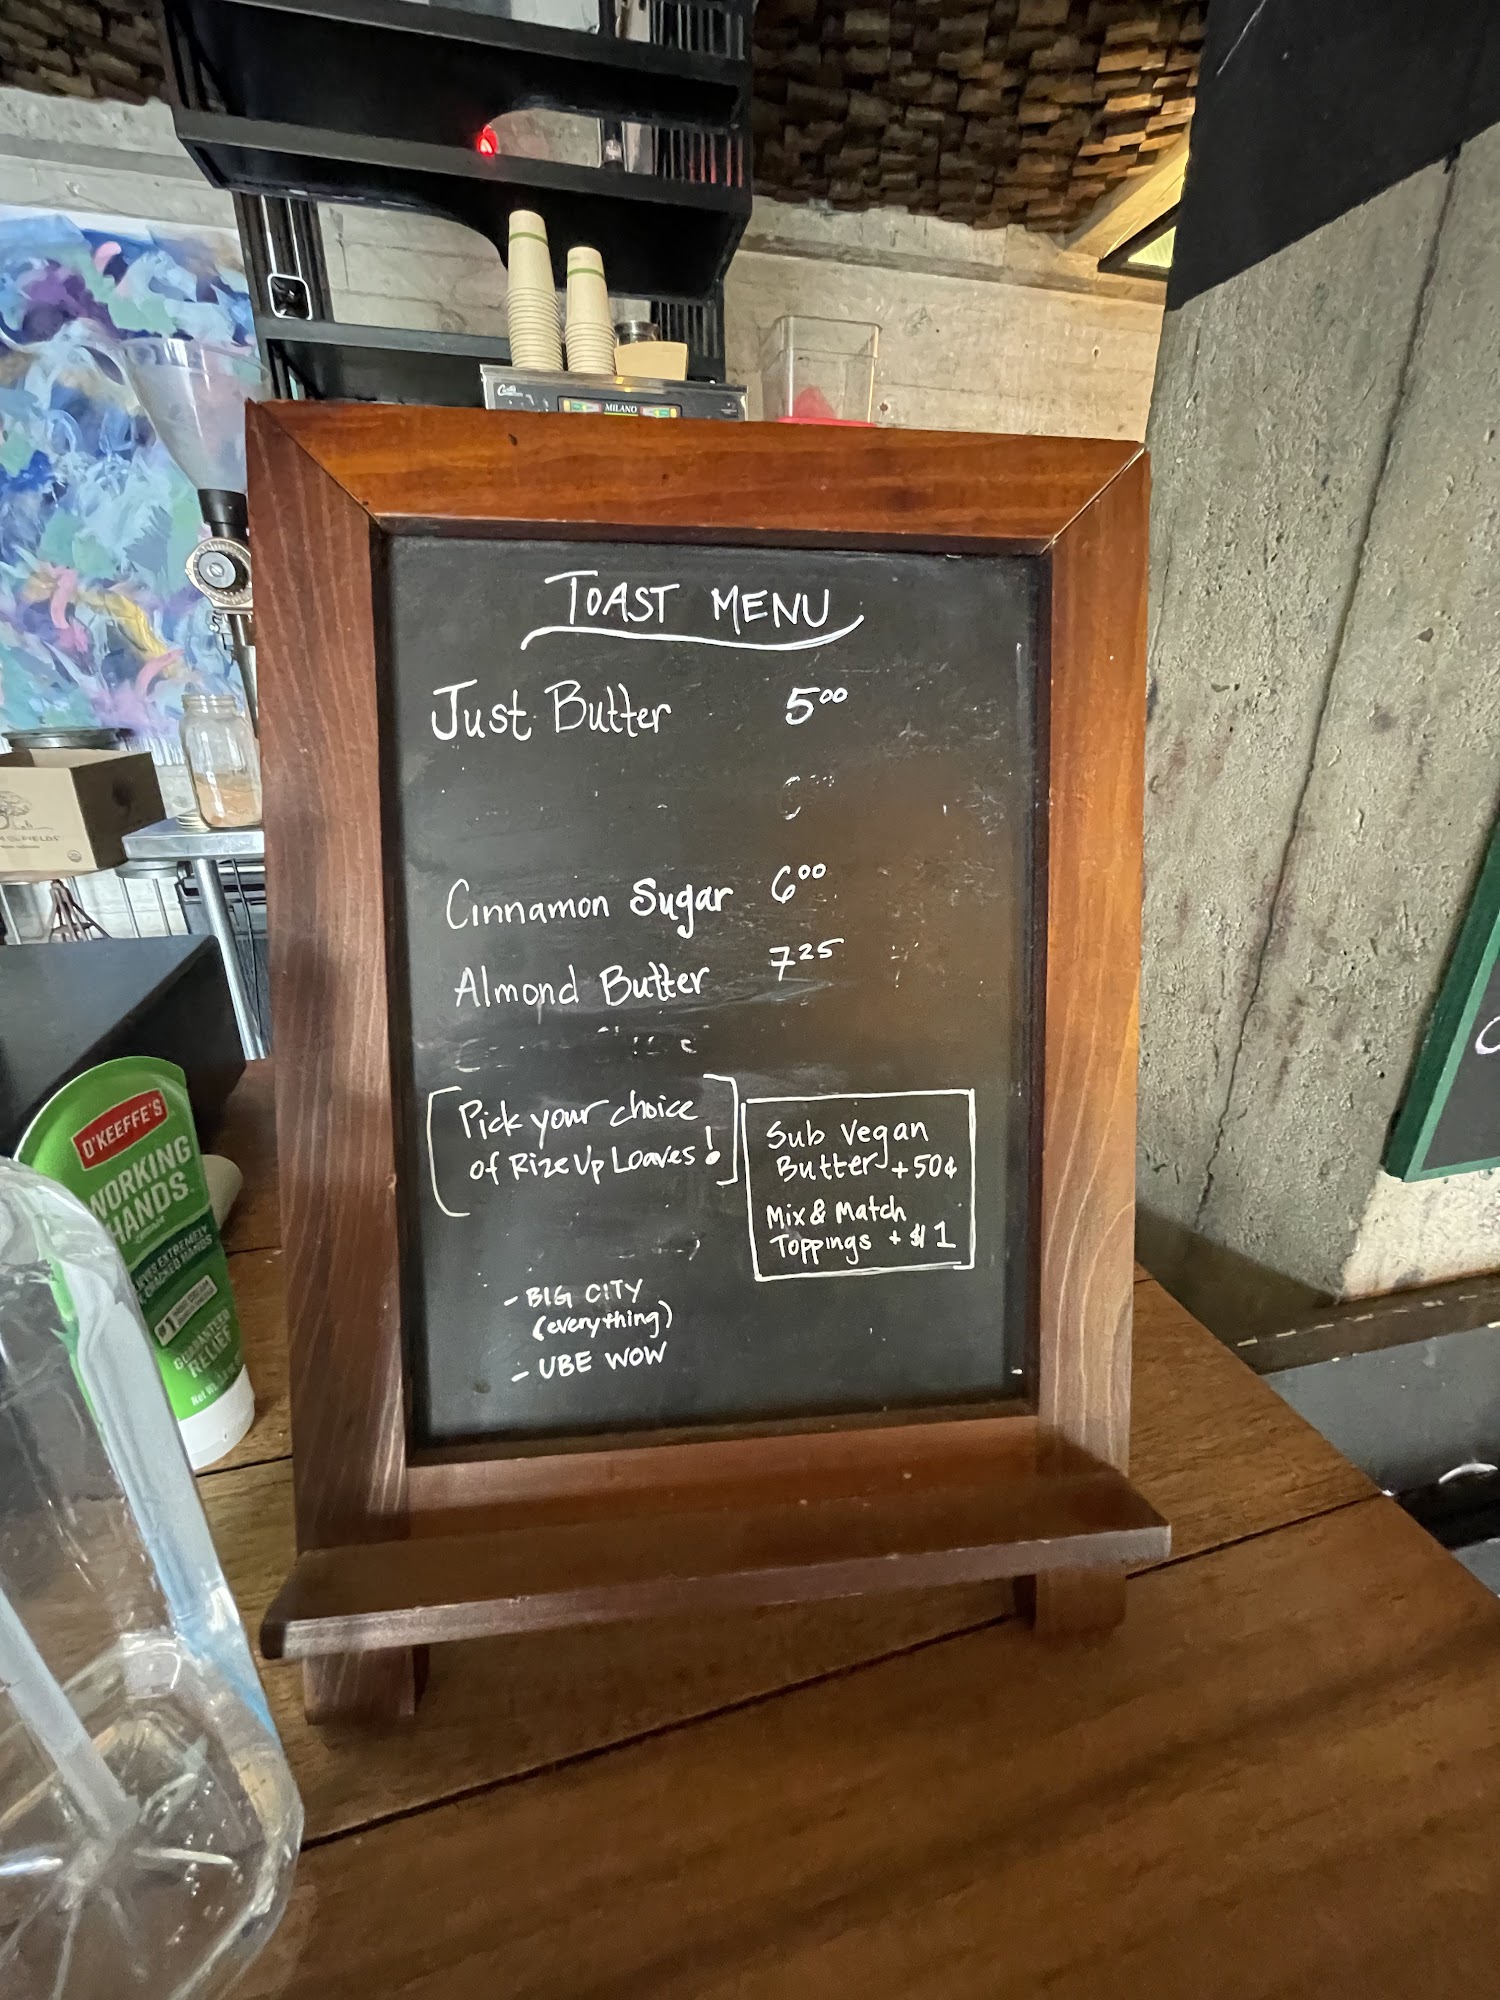 MILANO
TOAST MENU
Just Butter 5⁰⁰
Cinnamon Sugar 6⁰⁰
Almond Butter 7²⁵
[Pick your choice
of Rize Up Loaves!]
Sub Vegan
Butter +50¢
Mix & Match
Toppings + $1
- BIG CITY
(everything)
- UBE WOW
O'KEEFFE'S
WORKING
HANDS
GUARANTEED
RELIEF